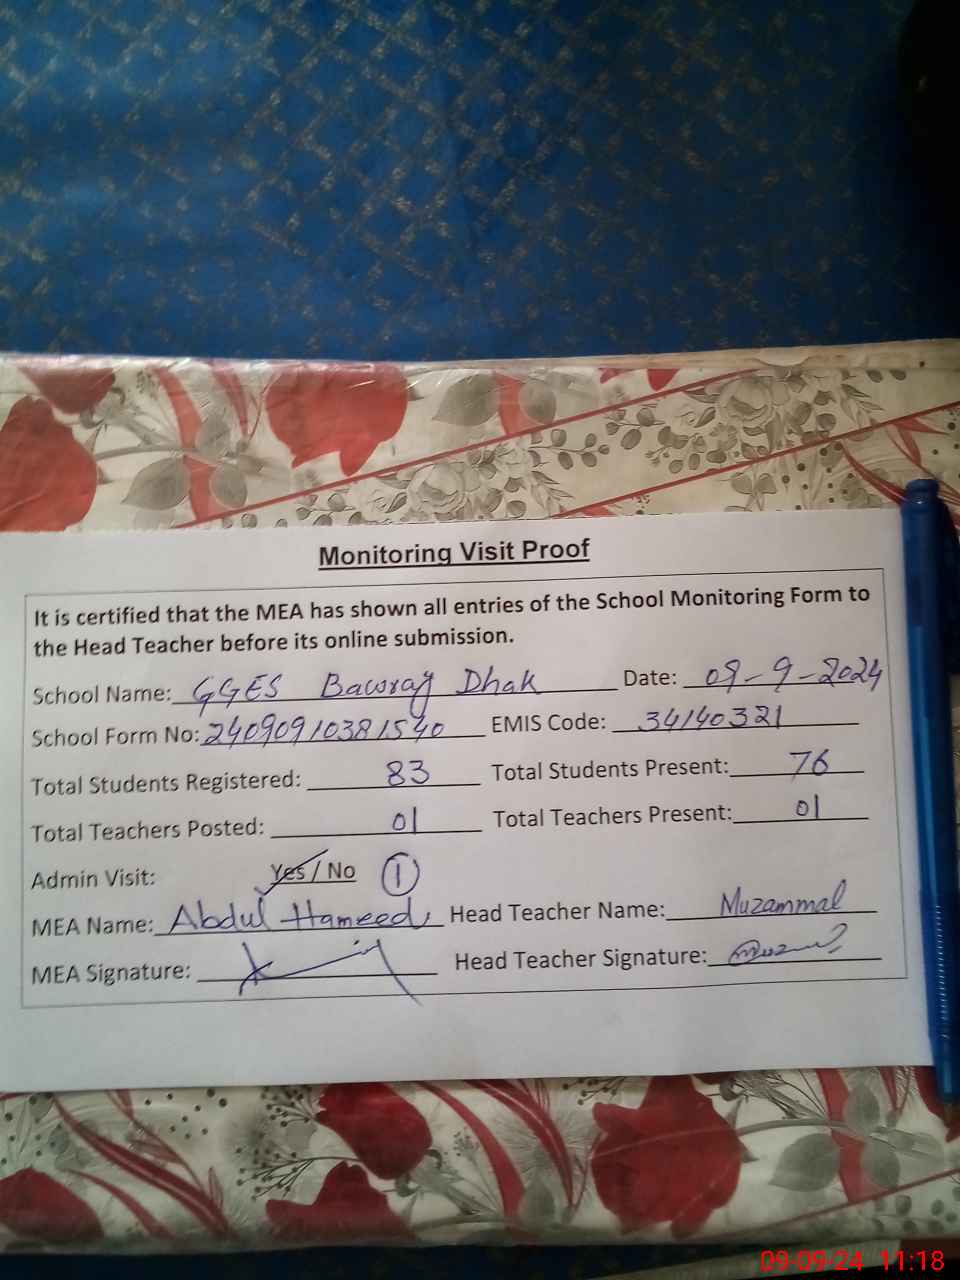 Monitoring Visit Proof
It is certified that the MEA has shown all entries of the School Monitoring Form to
the Head Teacher before its online submission.
School Name: GGES Bawraj Dhak Date: 09-9-2024
School Form No: 24090910381540 EMIS Code: 34140321
Total Students Registered: 83 Total Students Present: 76
Total Teachers Posted: 01 Total Teachers Present: 01
Admin Visit: Yes / No 1
MEA Name: Abdul Hameed Head Teacher Name: Muzammal
MEA Signature: Head Teacher Signature:
09-09-24 11:18